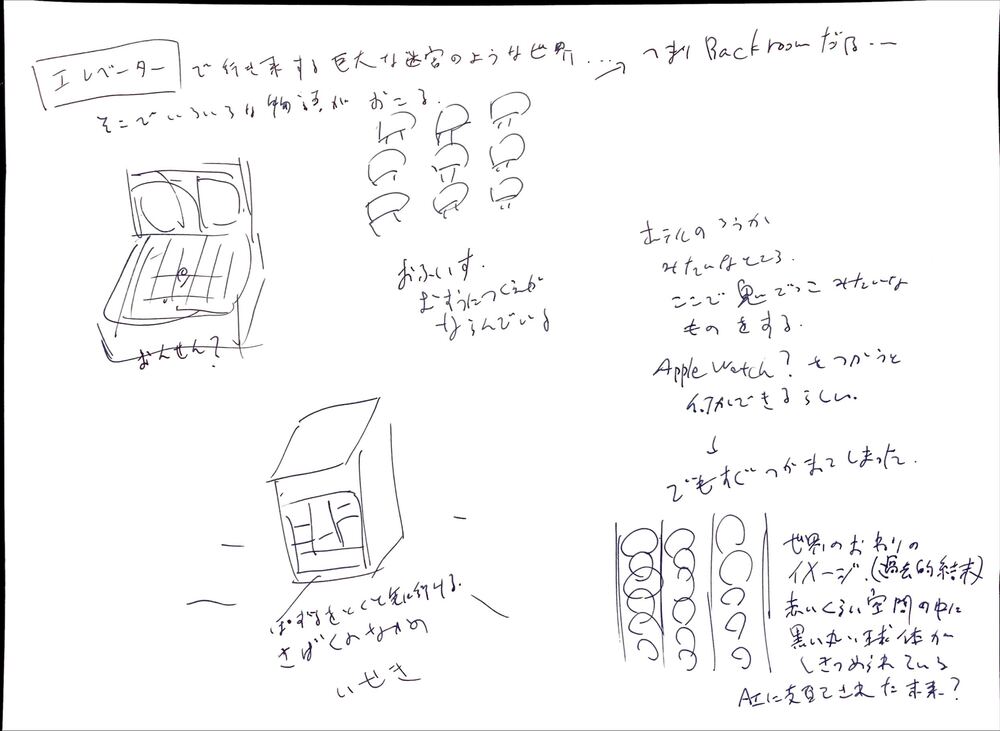 エレベーターで行き来する巨大な迷宮のような世界...→つまりBackroomだな...
そこでいろいろな物語がおこる.
おんせん?
おふぃす.
むすうにつくえが
ならんでいる
ホテルのろうか
みたいなところ.
ここで鬼ごっこみたいな
ものをする.
Apple Watch? をつかうと
何かできるらしい.
↓
でもすぐつかまってしまった.
ぱずるをとくと先に行ける.
さばくのなかの
いせき
世界のおわりの
イメージ.(過去的結末)
赤いくらい空間の中に
黒い丸い球体が
しきつめられている
AIに支配された未来?